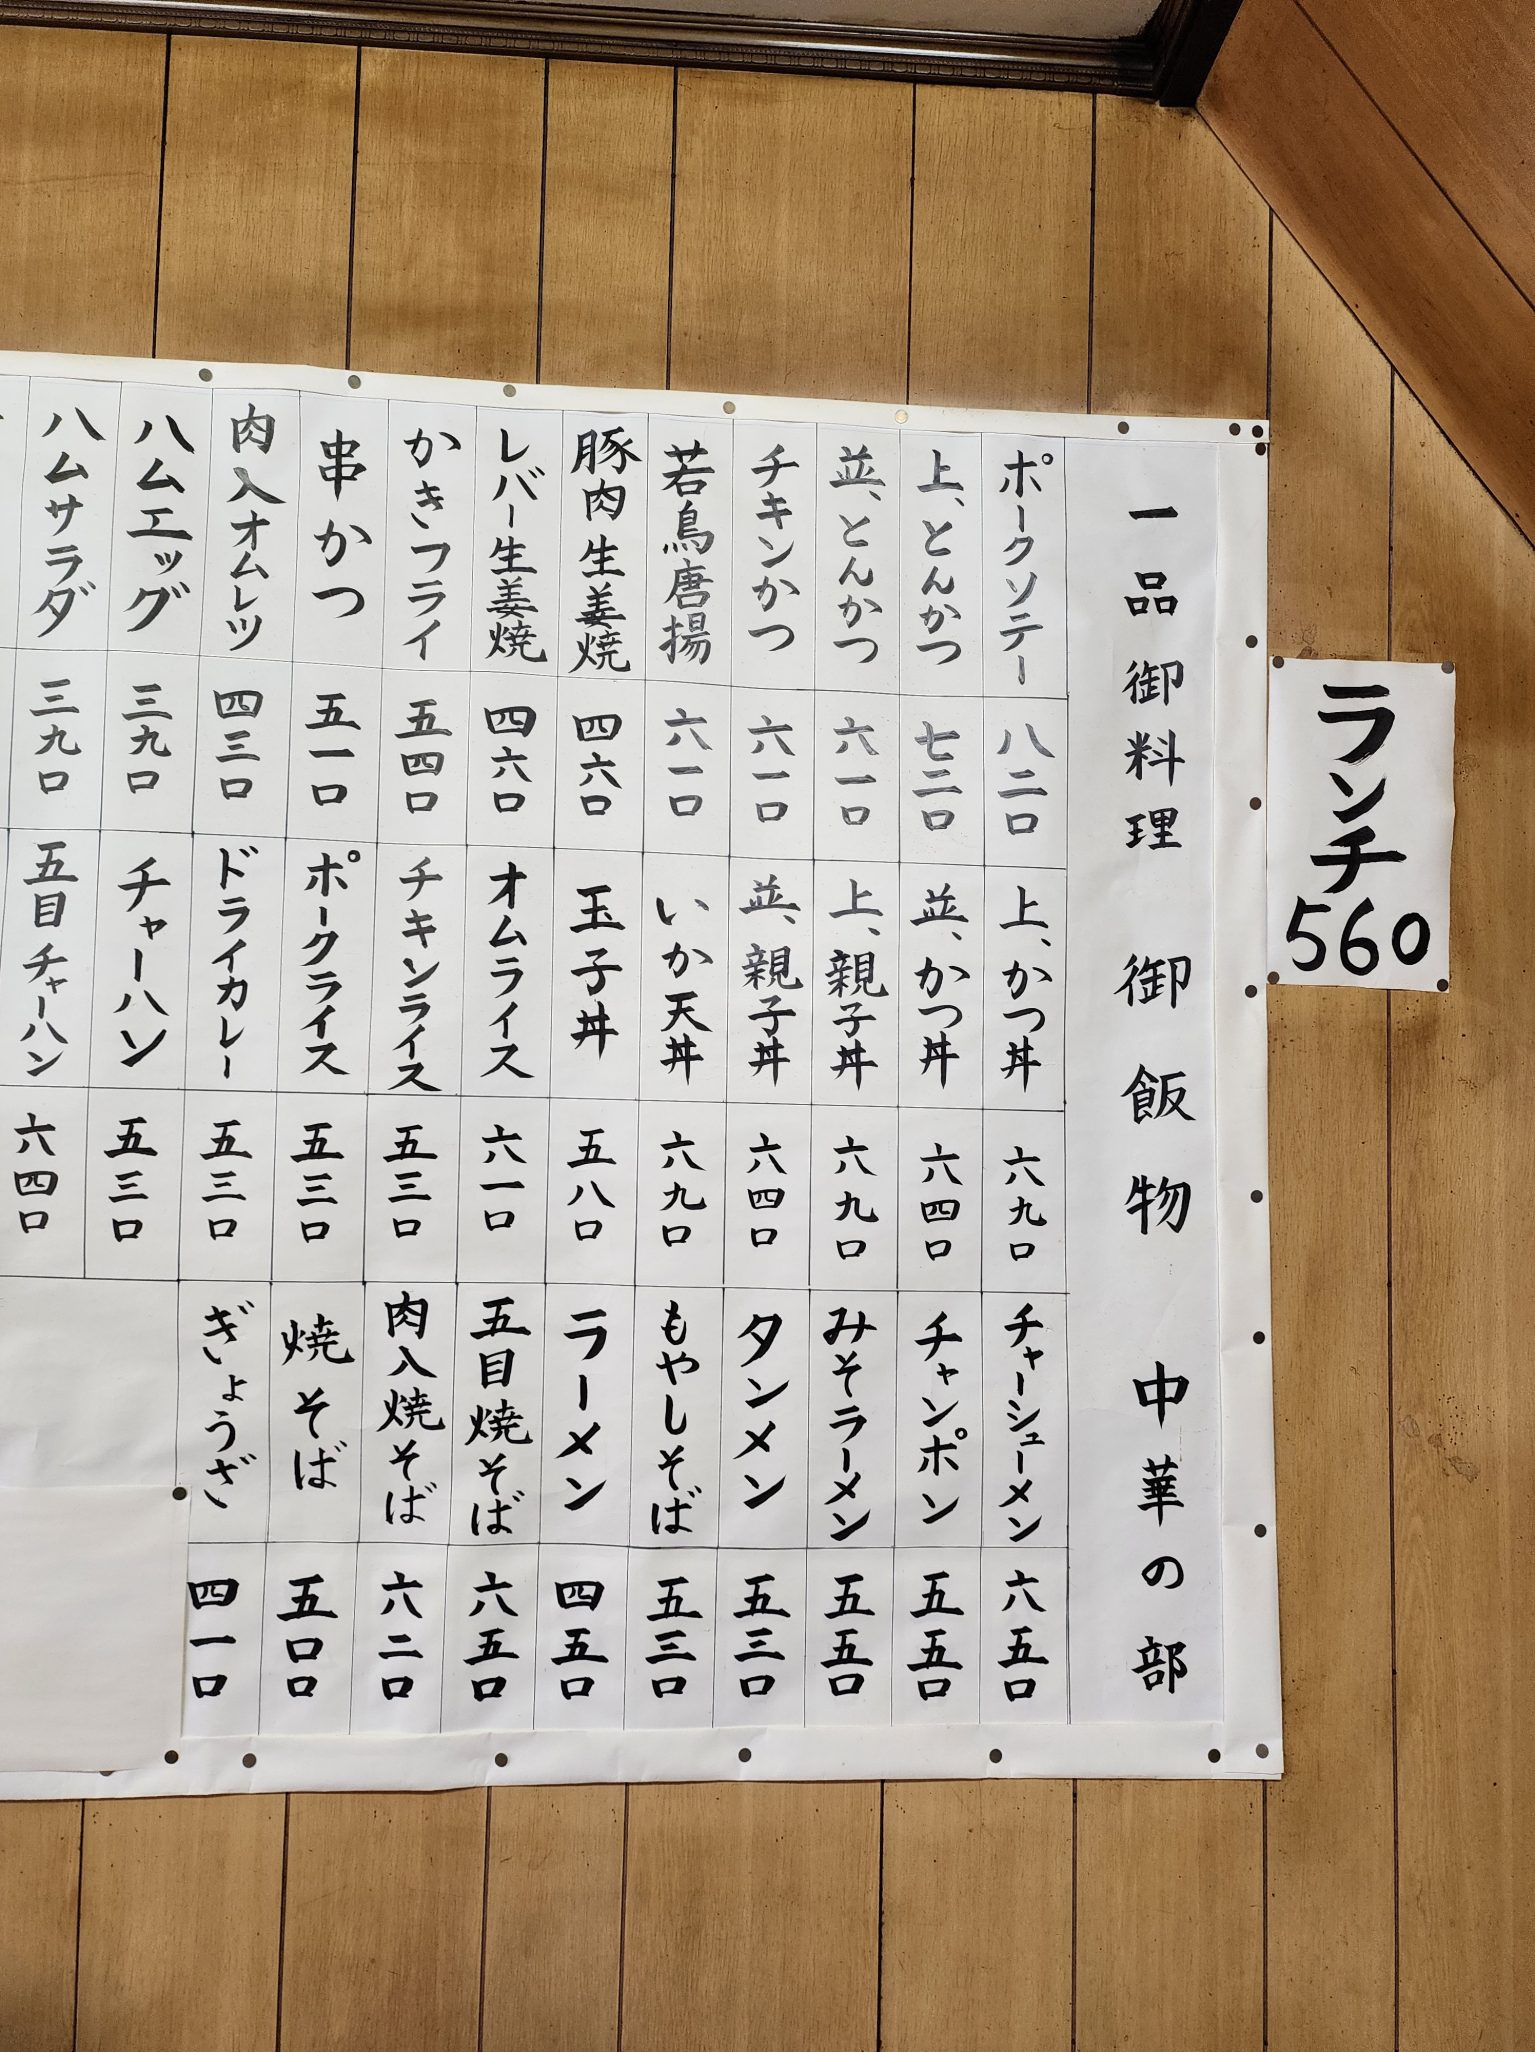 ランチ
560
一品御料理 御飯物 中華の部
ポークソテー 八二〇
上、とんかつ 七二〇
並、とんかつ 六一〇
チキンかつ 六一〇
若鳥唐揚 六一〇
豚肉生姜焼 四六〇
レバー生姜焼 四六〇
かきフライ 五四〇
串かつ 五一〇
肉入オムレツ 四三〇
ハムエッグ 三九〇
ハムサラダ 三九〇
上、かつ丼 六九〇
並、かつ丼 六四〇
上、親子丼 六九〇
並、親子丼 六四〇
いか天丼 六九〇
玉子丼 五八〇
オムライス 六一〇
チキンライス 五三〇
ポークライス 五三〇
ドライカレー 五三〇
チャーハン 五三〇
五目チャーハン 六四〇
チャーシューメン 六五〇
チャンポン 五五〇
みそラーメン 五五〇
タンメン 五三〇
もやしそば 五三〇
ラーメン 四五〇
五目焼そば 六五〇
肉入焼そば 六二〇
焼そば 五〇〇
ぎょうざ 四一〇